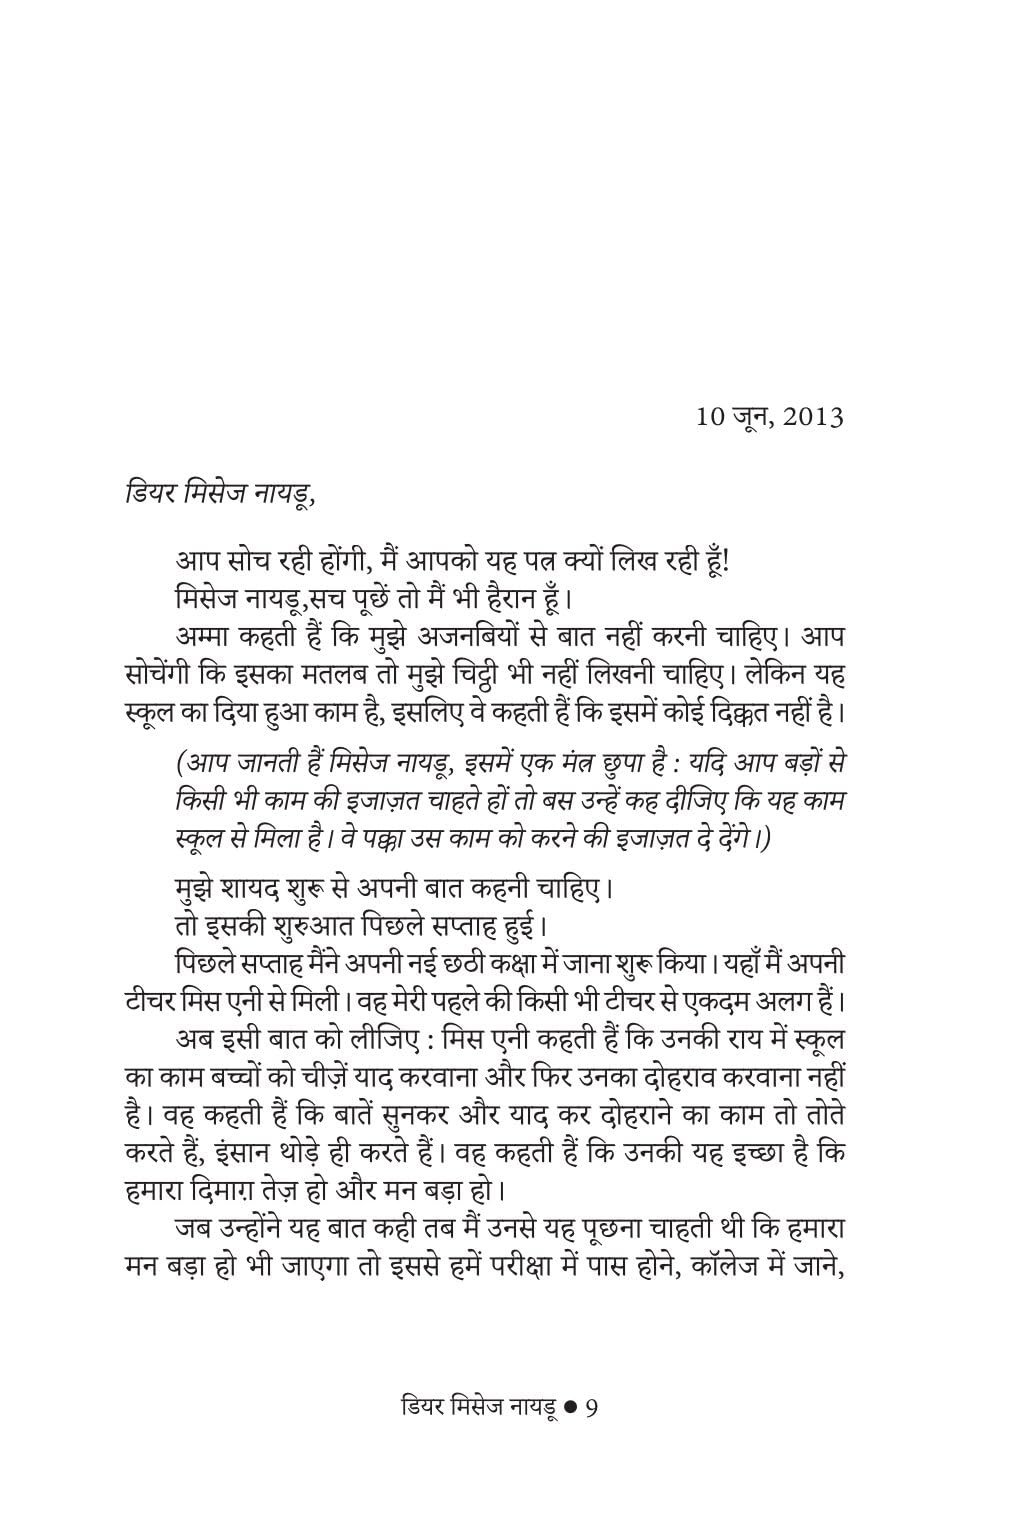 10 जून, 2013
डियर मिसेज नायडू,
आप सोच रही होंगी, मैं आपको यह पत्र क्यों लिख रही हूँ!
मिसेज नायडू,सच पूछें तो मैं भी हैरान हूँ।
अम्मा कहती हैं कि मुझे अजनबियों से बात नहीं करनी चाहिए। आप
सोचेंगी कि इसका मतलब तो मुझे चिट्ठी भी नहीं लिखनी चाहिए। लेकिन यह
स्कूल का दिया हुआ काम है, इसलिए वे कहती हैं कि इसमें कोई दिक्कत नहीं है।
(आप जानती हैं मिसेज नायडू, इसमें एक मंत्र छुपा है : यदि आप बड़ों से
किसी भी काम की इजाज़त चाहते हों तो बस उन्हें कह दीजिए कि यह काम
स्कूल से मिला है। वे पक्का उस काम को करने की इजाज़त दे देंगे।)
मुझे शायद शुरू से अपनी बात कहनी चाहिए।
तो इसकी शुरुआत पिछले सप्ताह हुई।
पिछले सप्ताह मैंने अपनी नई छठी कक्षा में जाना शुरू किया। यहाँ मैं अपनी
टीचर मिस एनी से मिली। वह मेरी पहले की किसी भी टीचर से एकदम अलग हैं।
अब इसी बात को लीजिए : मिस एनी कहती हैं कि उनकी राय में स्कूल
का काम बच्चों को चीज़ें याद करवाना और फिर उनका दोहराव करवाना नहीं
है। वह कहती हैं कि बातें सुनकर और याद कर दोहराने का काम तो तोते
करते हैं, इंसान थोड़े ही करते हैं। वह कहती हैं कि उनकी यह इच्छा है कि
हमारा दिमाग़ तेज़ हो और मन बड़ा हो।
जब उन्होंने यह बात कही तब मैं उनसे यह पूछना चाहती थी कि हमारा
मन बड़ा हो भी जाएगा तो इससे हमें परीक्षा में पास होने, कॉलेज में जाने,
डियर मिसेज नायडू ● 9